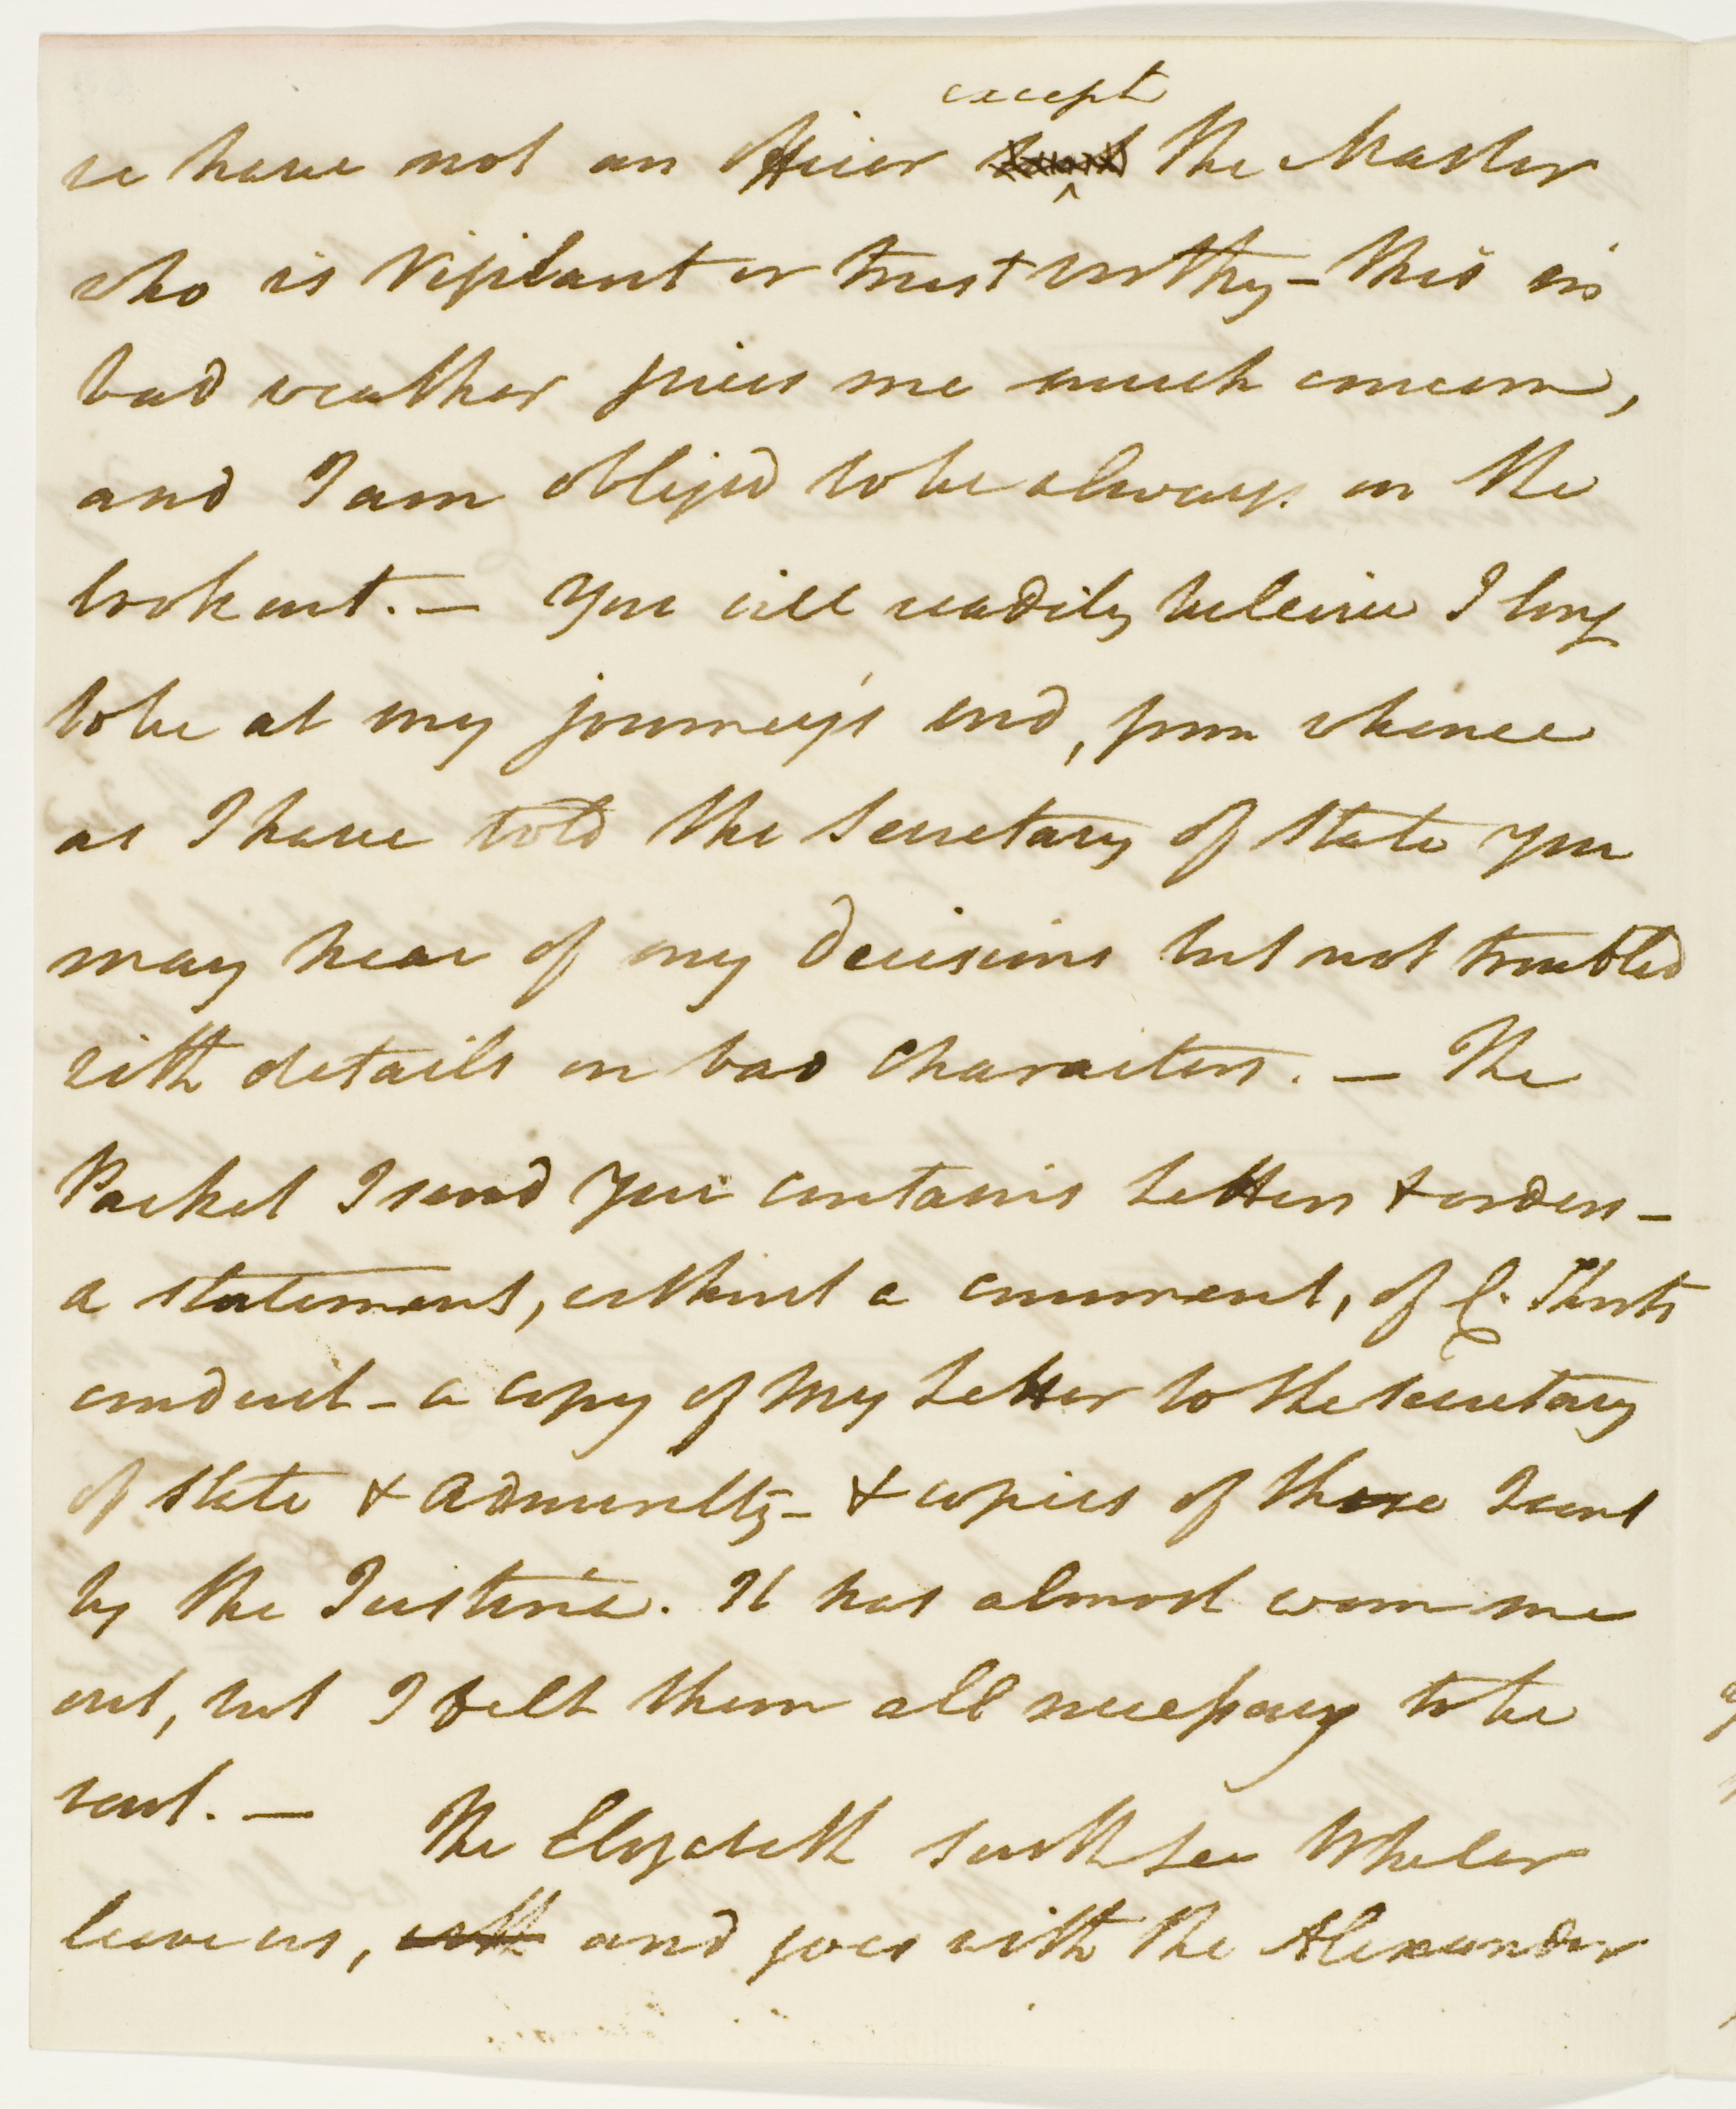 we have not an Officer except the Master
who is Vigilant or trust worthy – this in
bad weather gives me much concern,
and I am obliged to be always on the
look out. — You will readily beleive I long
to be at my journey's end, from whence
as I have told the Secretary of State you
may hear of my decisions but not troubled
with details on bad characters. — The
Packet I send you contains Letters & orders –
a statement, without a comment, of C. Shorts
conduct – a copy of my Letter to the Secretary
of State & Admiralty – & copies of those I sent
by the Justina. It has almost worn me
out, but I felt them all necessary to be
sent. —
The Elizabeth South Sea Whaler
leave us, with and goes with the Alexander